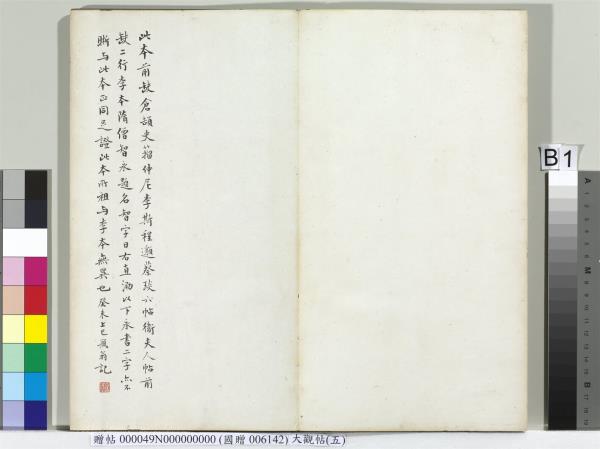 此本前缺倉頡史籀仲尼李斯程邈蔡琰六帖衞夫人帖前
缺二行李本隋僧智永題名智字日右直泐以下永書二字亦不
晰与此本正同足證此本所祖与李本無異也癸未上巳風翁記
B1
贈帖 000049N000000000 (國贈 006142) 大觀帖(五)